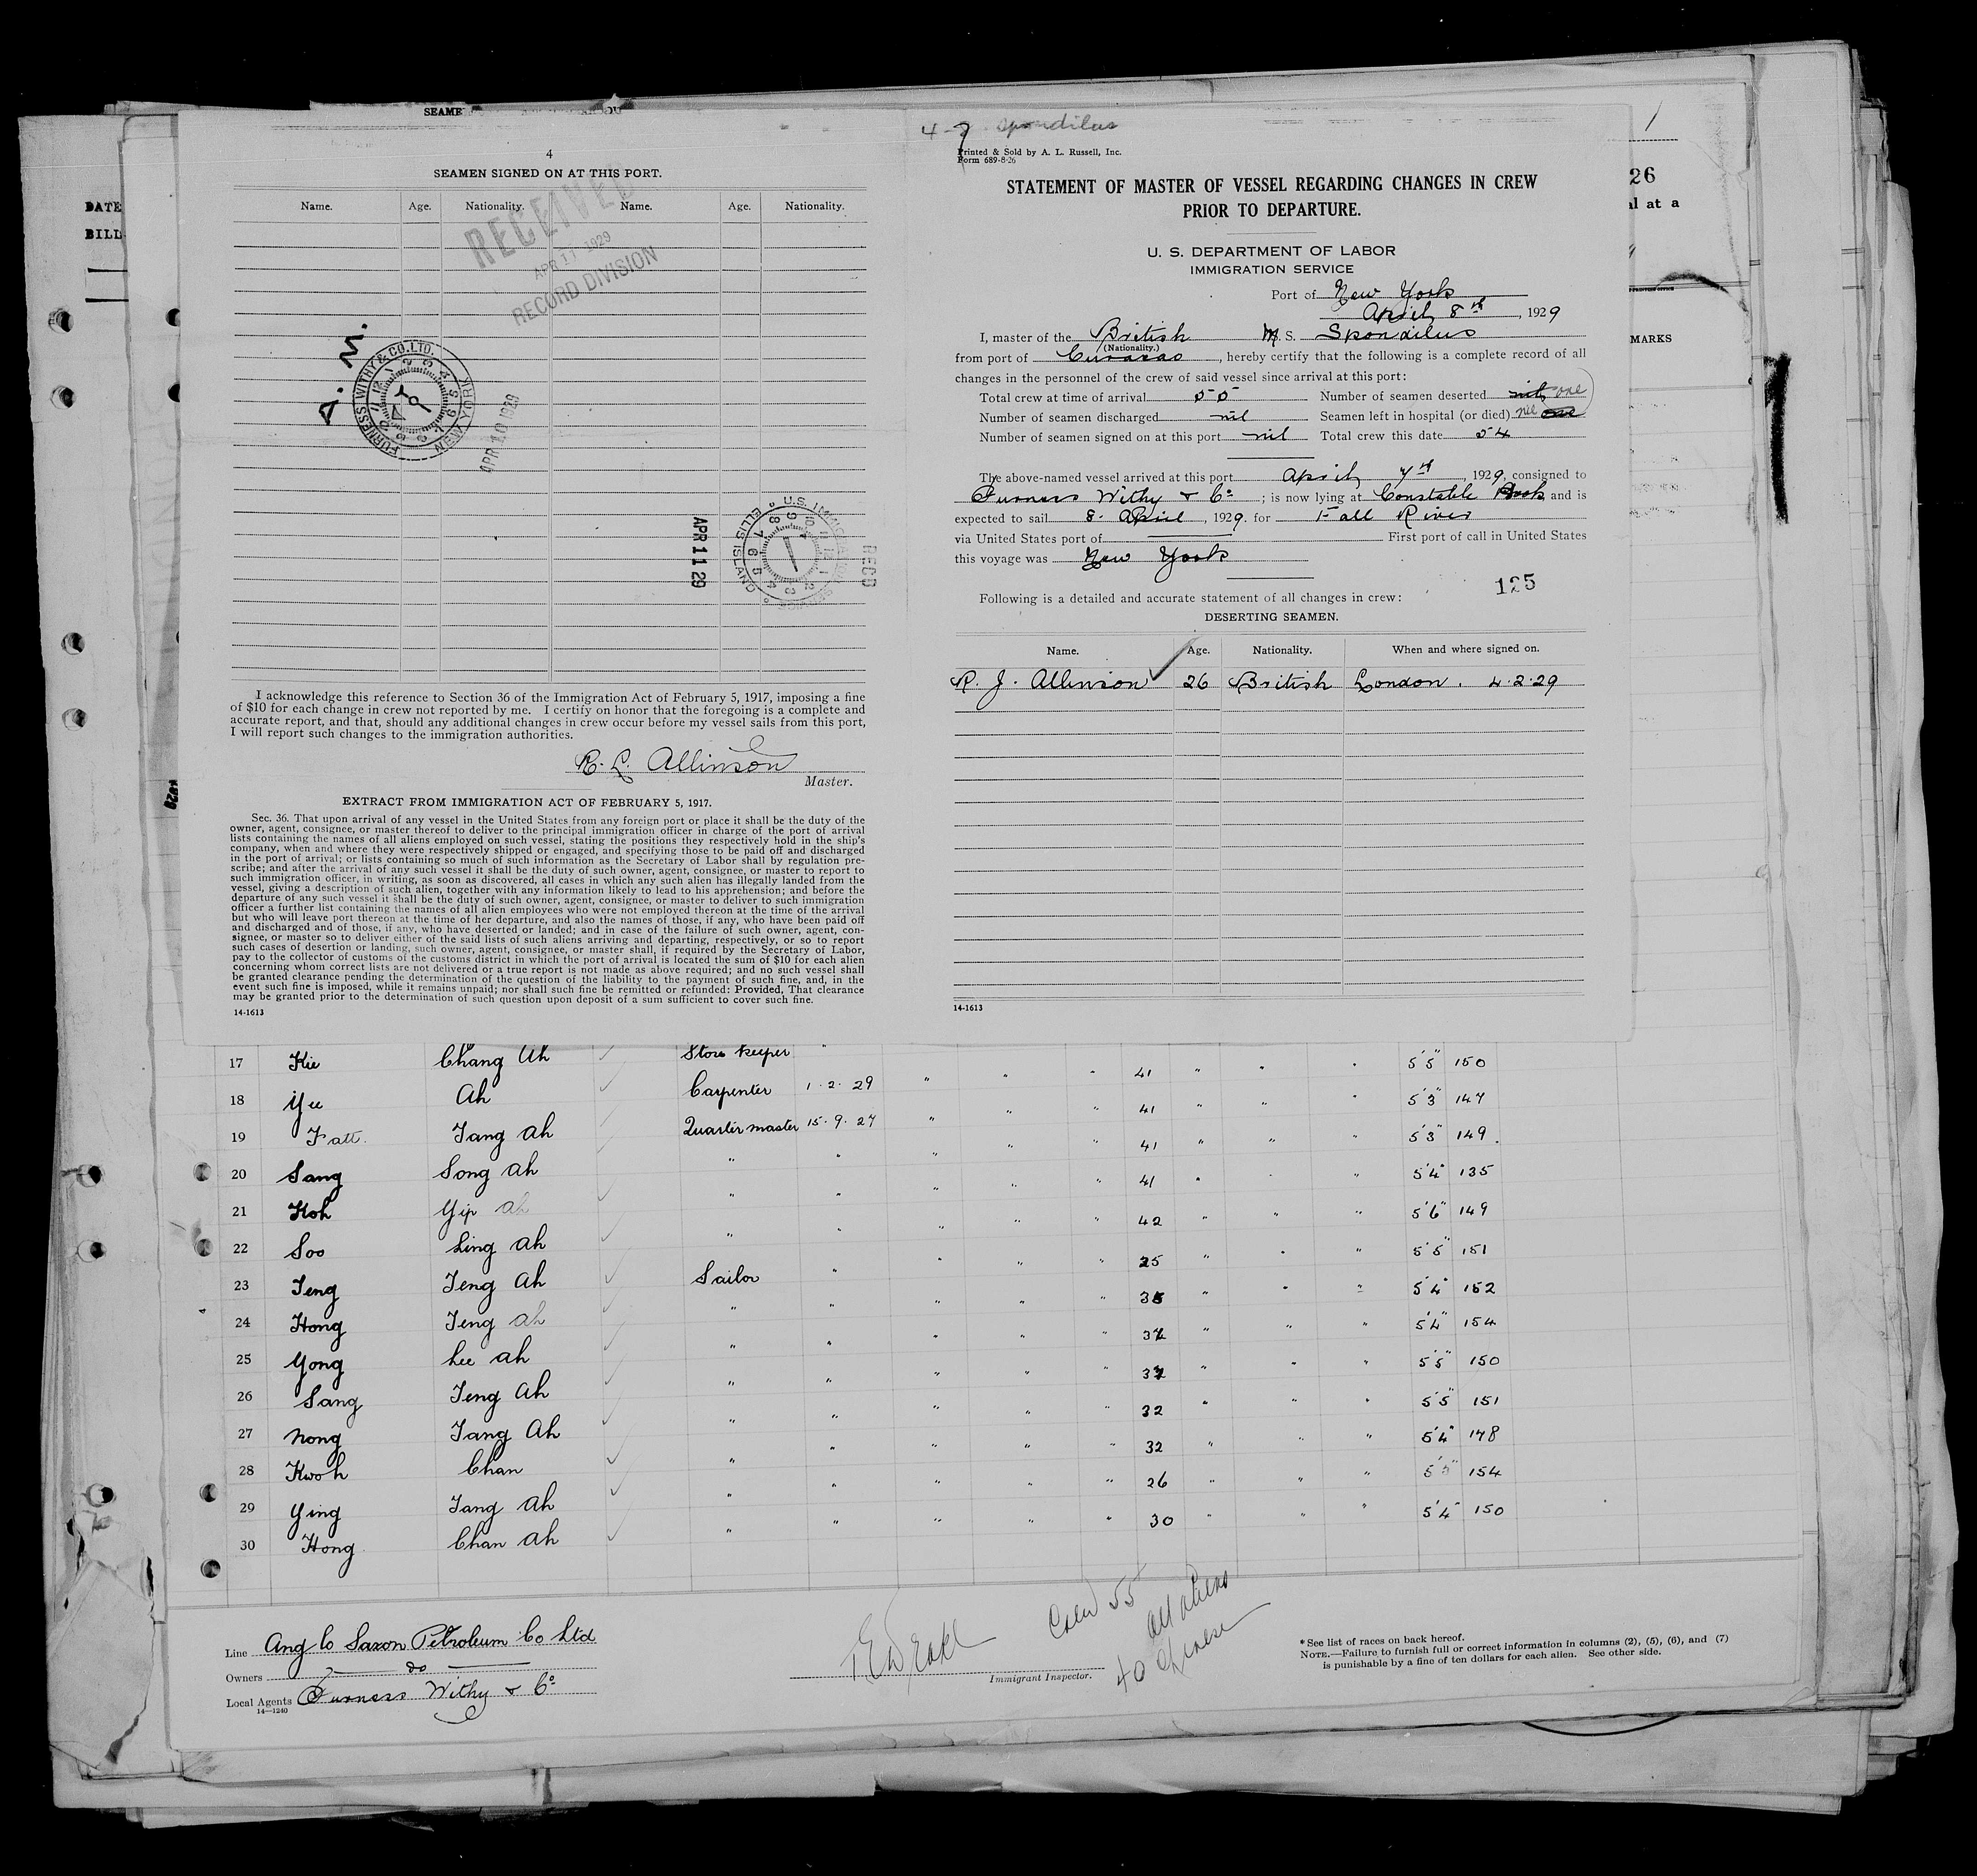 SEAME
DATE
BILL
4
SEAMEN SIGNED ON AT THIS PORT.
Name. Age. Nationality. Name. Age. Nationality.
RECEIVED
APR 11 1929
RECORD DIVISION
A. M.
FURNESS WITHY & CO. LTD.
NEW YORK
APR 10 1929
APR 11 29
U.S. IMMIGRATION SERVICE
ELLIS ISLAND
RECD
I acknowledge this reference to Section 36 of the Immigration Act of February 5, 1917, imposing a fine
of $10 for each change in crew not reported by me. I certify on honor that the foregoing is a complete and
accurate report, and that, should any additional changes in crew occur before my vessel sails from this port,
I will report such changes to the immigration authorities.
R. L. Allinson
Master.
EXTRACT FROM IMMIGRATION ACT OF FEBRUARY 5, 1917.
Sec. 36. That upon arrival of any vessel in the United States from any foreign port or place it shall be the duty of the
owner, agent, consignee, or master thereof to deliver to the principal immigration officer in charge of the port of arrival
lists containing the names of all aliens employed on such vessel, stating the positions they respectively hold in the ship's
company, when and where they were respectively shipped or engaged, and specifying those to be paid off and discharged
in the port of arrival; or lists containing so much of such information as the Secretary of Labor shall by regulation pre-
scribe; and after the arrival of any such vessel it shall be the duty of such owner, agent, consignee, or master to report to
such immigration officer, in writing, as soon as discovered, all cases in which any such alien has illegally landed from the
vessel, giving a description of such alien, together with any information likely to lead to his apprehension; and before the
departure of any such vessel it shall be the duty of such owner, agent, consignee, or master to deliver to such immigration
officer a further list containing the names of all alien employees who were not employed thereon at the time of the arrival
but who will leave port thereon at the time of her departure, and also the names of those, if any, who have been paid off
and discharged and of those, if any, who have deserted or landed; and in case of the failure of such owner, agent, con-
signee, or master so to deliver either of the said lists of such aliens arriving and departing, respectively, or so to report
such cases of desertion or landing, such owner, agent, consignee, or master shall, if required by the Secretary of Labor,
pay to the collector of customs of the customs district in which the port of arrival is located the sum of $10 for each alien
concerning whom correct lists are not delivered or a true report is not made as above required; and no such vessel shall
be granted clearance pending the determination of the question of the liability to the payment of such fine, and, in the
event such fine is imposed, while it remains unpaid; nor shall such fine be remitted or refunded: Provided, That clearance
may be granted prior to the determination of such question upon deposit of a sum sufficient to cover such fine.
14-1613
4-7 Spondilus
Printed & Sold by A. L. Russell, Inc.
Form 689-8-26
STATEMENT OF MASTER OF VESSEL REGARDING CHANGES IN CREW
PRIOR TO DEPARTURE.
U. S. DEPARTMENT OF LABOR
IMMIGRATION SERVICE
Port of New York
April 8th, 1929
I, master of the British M. S. Spondilus
(Nationality.)
from port of Curacao, hereby certify that the following is a complete record of all
changes in the personnel of the crew of said vessel since arrival at this port:
Total crew at time of arrival 55 Number of seamen deserted nil one
Number of seamen discharged nil Seamen left in hospital (or died) nil one
Number of seamen signed on at this port nil Total crew this date 54
The above-named vessel arrived at this port April 7th, 1929, consigned to
Furness Withy & Co; is now lying at Constable Hook and is
expected to sail 8. April, 1929. for Fall River
via United States port of First port of call in United States
this voyage was New York
125
Following is a detailed and accurate statement of all changes in crew:
DESERTING SEAMEN.
Name. Age. Nationality. When and where signed on.
R. J. Allinson 26 British London. 4.2.29
14-1613
1
26
al at a
MARKS
17 Kie Chang Ah Store keeper " 41 " " " 5'5" 150
18 Yee Ah Carpenter 1.2.29 " " " 41 " " " 5'3" 147
19 Fatt. Tang Ah Quartermaster 15.9.27 " " " 41 " " " 5'3" 149
20 Sang Song Ah " " " " " 41 " " " 5'4" 135
21 Koh Yip Ah " " " " " 42 " " " 5'6" 149
22 Soo Ling Ah " " " " " 25 " " " 5'5" 151
23 Teng Teng Ah Sailor " " " " 35 " " " 5'4" 152
24 Hong Teng Ah " " " " " 32 " " " 5'4" 154
25 Yong Lee Ah " " " " " 32 " " " 5'5" 150
26 Sang Teng Ah " " " " " 32 " " " 5'5" 151
27 Nong Tang Ah " " " " " 32 " " " 5'4" 148
28 Kwoh Chan " " " " " 26 " " " 5'5" 154
29 Ying Tang Ah " " " " " 30 " " " 5'4" 150
30 Hong Chan Ah "
Line Anglo Saxon Petroleum Co Ltd
Owners do
Local Agents Furness Withy & Co
14—1240
Immigrant Inspector.
Crew 55
all aliens
40 Chinese
* See list of races on back hereof.
NOTE.—Failure to furnish full or correct information in columns (2), (5), (6), and (7)
is punishable by a fine of ten dollars for each alien. See other side.